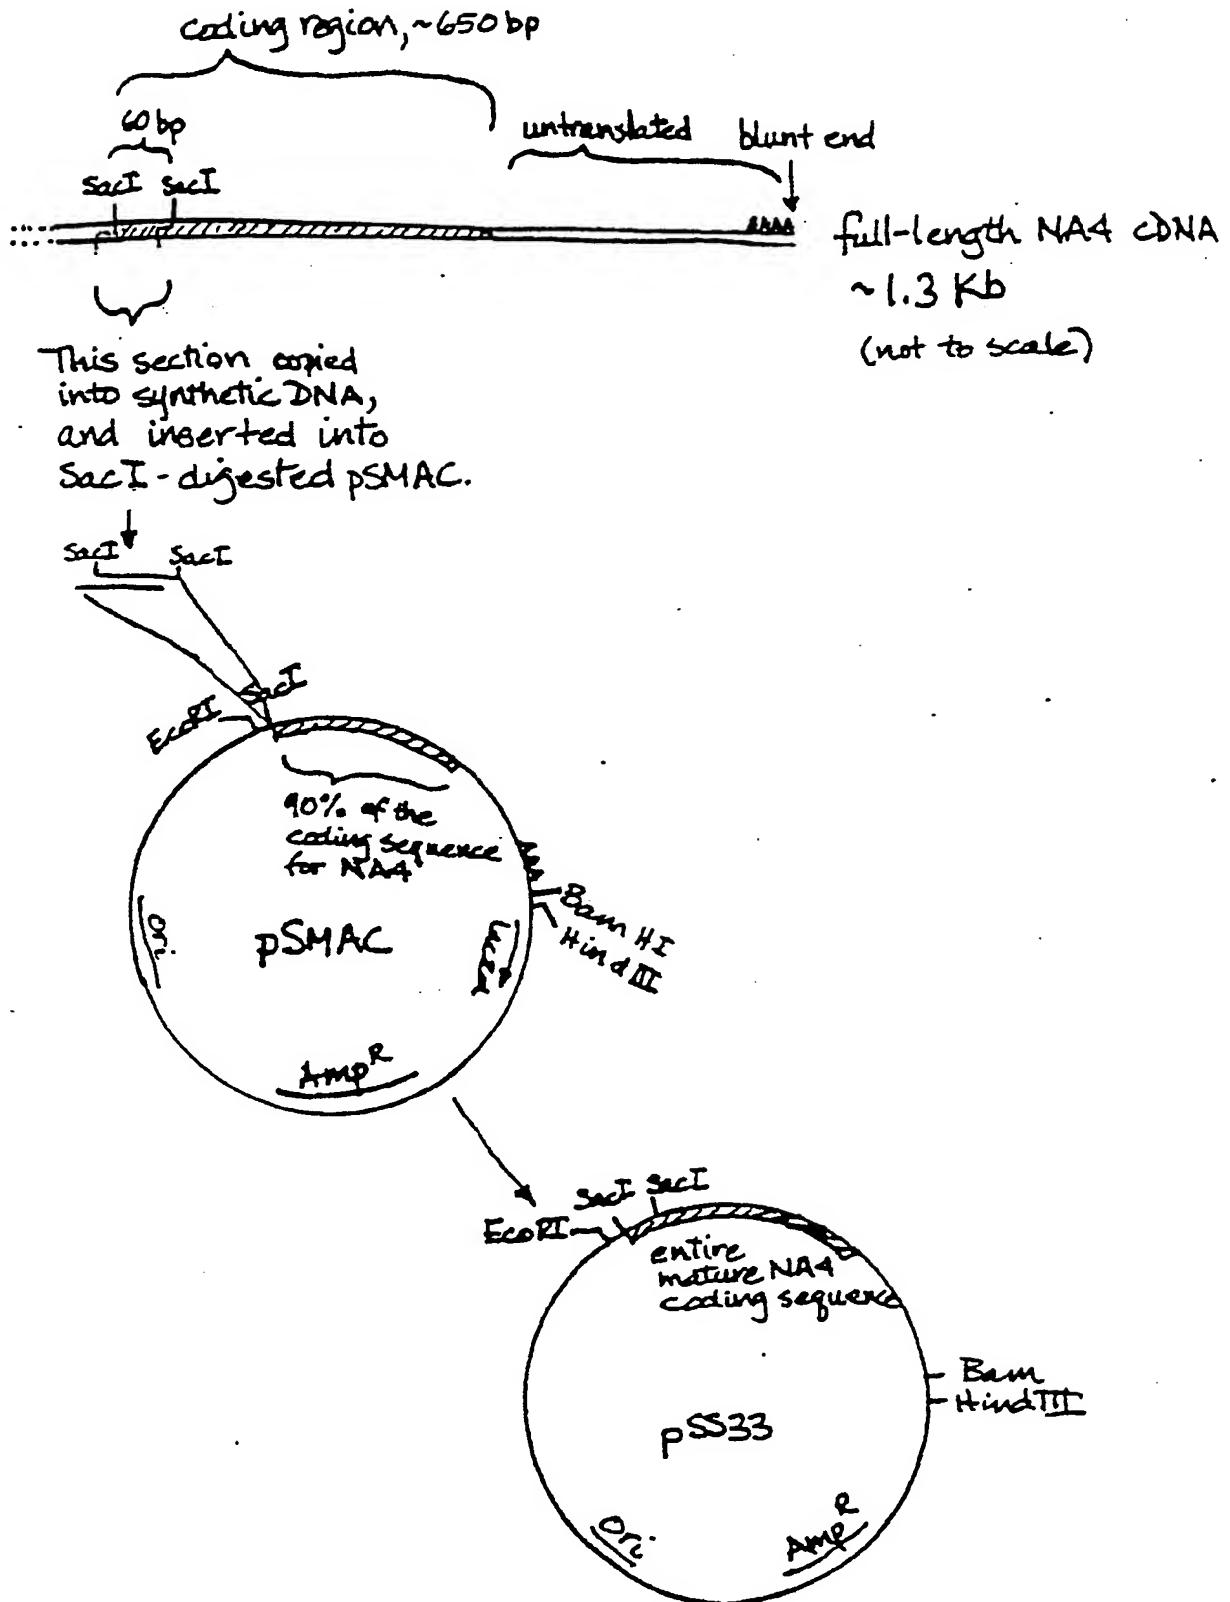 coding region, ~650 bp
60 bp
untranslated
blunt end
SacI SacI
AAAA
full-length NA4 cDNA
~1.3 Kb
(not to scale)
This section copied
into synthetic DNA,
and inserted into
SacI-digested pSMAC.
SacI SacI
SacI
EcoRI
90% of the
coding sequence
for NA4
AAA
Bam HI
Hind III
Ori
pSMAC
Amp R
SacI SacI
EcoRI
entire
mature NA4
coding sequence
Bam
Hind III
pSS33
Ori
Amp R